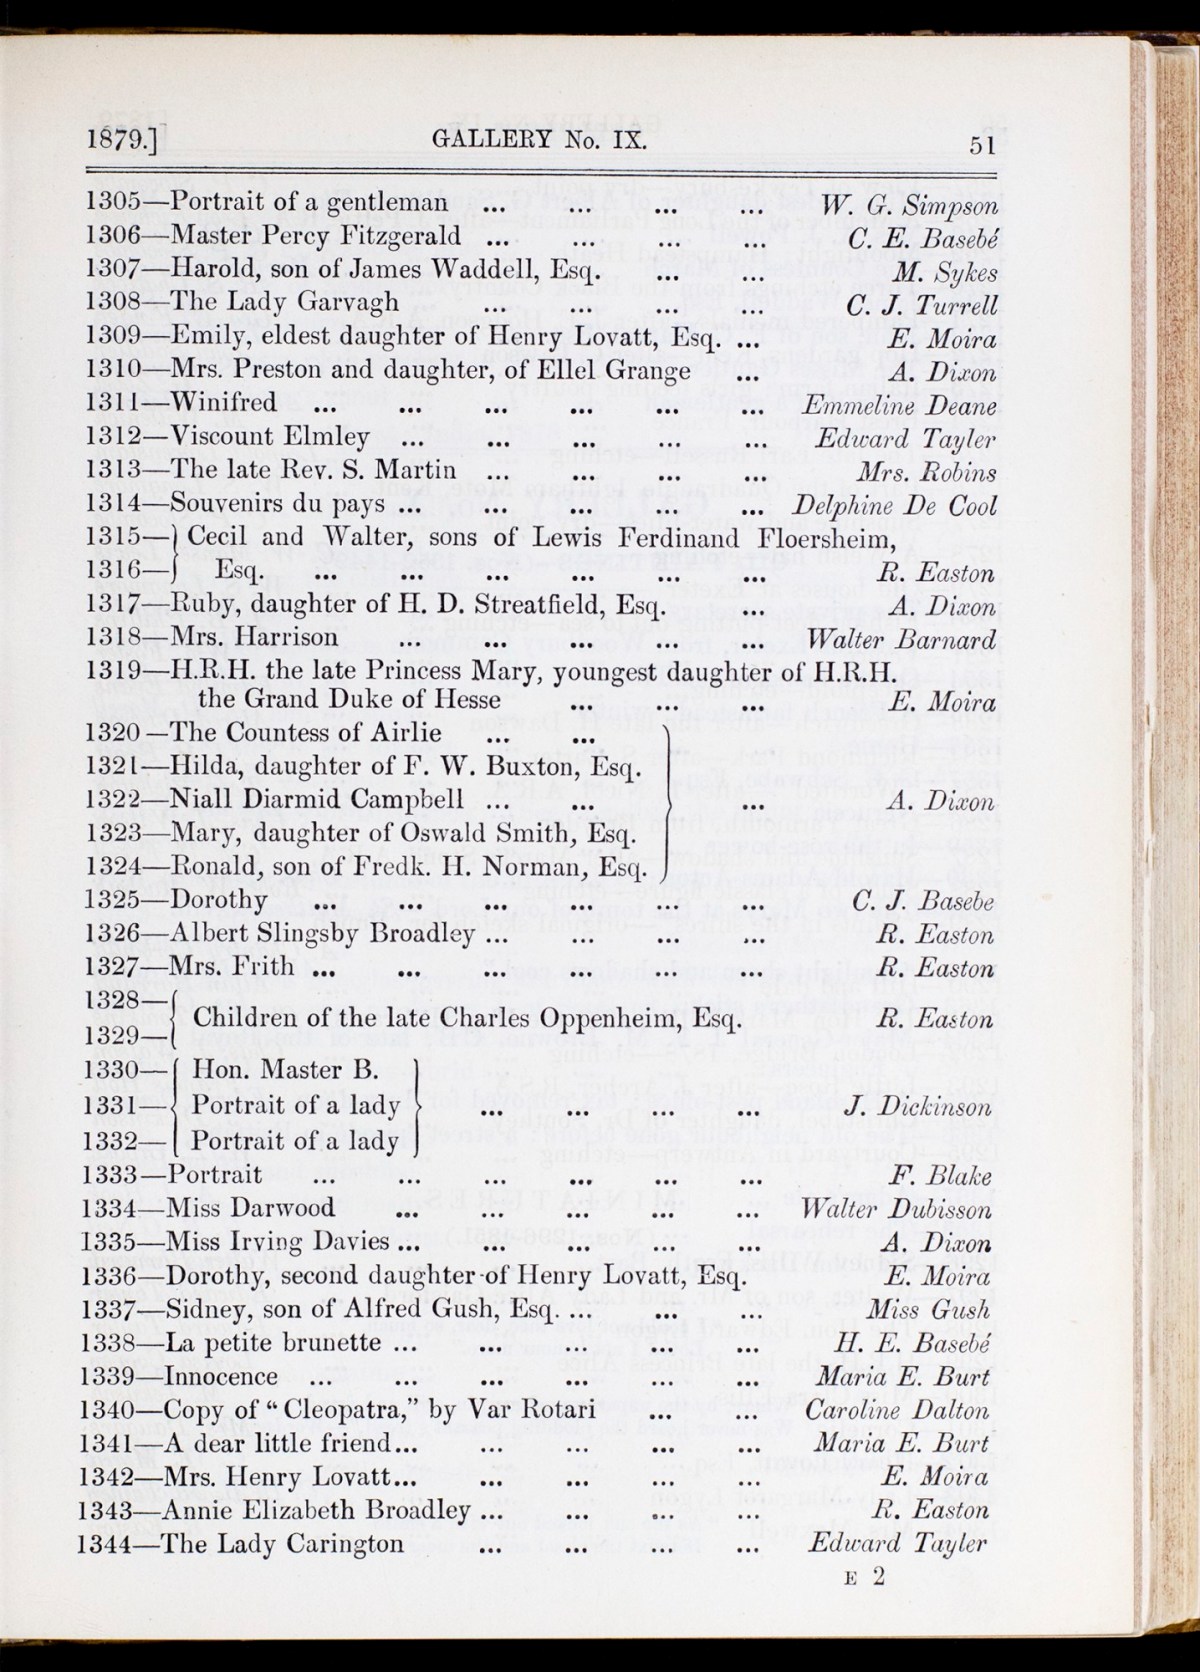 1879.] GALLERY No. IX. 51
1305—Portrait of a gentleman ... ... ... ... W. G. Simpson
1306—Master Percy Fitzgerald ... ... ... ... C. E. Basebé
1307—Harold, son of James Waddell, Esq. ... ... M. Sykes
1308—The Lady Garvagh ... ... ... ... C. J. Turrell
1309—Emily, eldest daughter of Henry Lovatt, Esq. ... E. Moira
1310—Mrs. Preston and daughter, of Ellel Grange ... A. Dixon
1311—Winifred ... ... ... ... ... ... Emmeline Deane
1312—Viscount Elmley ... ... ... ... ... Edward Tayler
1313—The late Rev. S. Martin ... ... ... ... Mrs. Robins
1314—Souvenirs du pays ... ... ... ... ... Delphine De Cool
1315—} Cecil and Walter, sons of Lewis Ferdinand Floersheim,
1316—} Esq. ... ... ... ... ... ... R. Easton
1317—Ruby, daughter of H. D. Streatfield, Esq. ... A. Dixon
1318—Mrs. Harrison ... ... ... ... ... Walter Barnard
1319—H.R.H. the late Princess Mary, youngest daughter of H.R.H.
the Grand Duke of Hesse ... ... ... E. Moira
1320—The Countess of Airlie ... ...
1321—Hilda, daughter of F. W. Buxton, Esq.
1322—Niall Diarmid Campbell ... ... } ... A. Dixon
1323—Mary, daughter of Oswald Smith, Esq.
1324—Ronald, son of Fredk. H. Norman, Esq.
1325—Dorothy ... ... ... ... ... ... C. J. Basebe
1326—Albert Slingsby Broadley ... ... ... ... R. Easton
1327—Mrs. Frith ... ... ... ... ... ... R. Easton
1328—{
1329—{ Children of the late Charles Oppenheim, Esq. R. Easton
1330—{ Hon. Master B. }
1331—{ Portrait of a lady } ... ... ... ... J. Dickinson
1332—{ Portrait of a lady }
1333—Portrait ... ... ... ... ... ... F. Blake
1334—Miss Darwood ... ... ... ... ... Walter Dubisson
1335—Miss Irving Davies ... ... ... ... ... A. Dixon
1336—Dorothy, second daughter of Henry Lovatt, Esq. E. Moira
1337—Sidney, son of Alfred Gush, Esq. ... ... ... Miss Gush
1338—La petite brunette ... ... ... ... ... H. E. Basebé
1339—Innocence ... ... ... ... ... ... Maria E. Burt
1340—Copy of “Cleopatra,” by Var Rotari ... ... Caroline Dalton
1341—A dear little friend... ... ... ... ... Maria E. Burt
1342—Mrs. Henry Lovatt... ... ... ... ... E. Moira
1343—Annie Elizabeth Broadley ... ... ... ... R. Easton
1344—The Lady Carington ... ... ... ... Edward Tayler
E 2